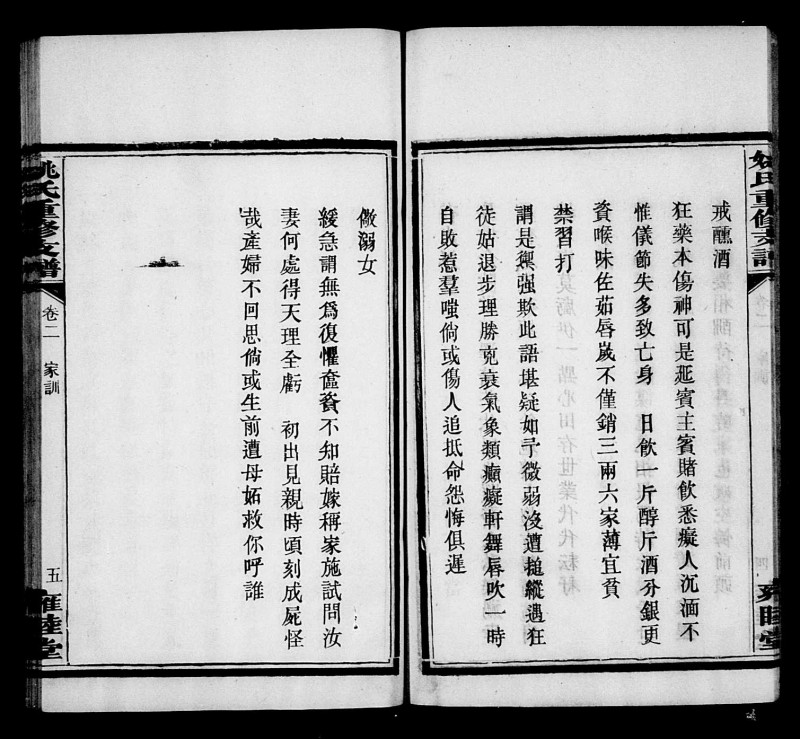 姚氏重修支譜
雍睦堂
戒醺酒
狂藥本傷神可是延賓主賓賭飲悉癡人沉湎不
惟儀節失多致亡身 日飲一斤醇斤酒分銀更
資喉味佐茹唇歲不僅銷三兩六家薄宜貧
禁習打
謂是禦强欺此語堪疑如予微弱沒遭搥縱遇狂
徒姑退步理勝克衰氣象類癲癡軒舞唇吹一時
自敗惹羣嗤倘或傷人追抵命怨悔俱遲
儆溺女
緩急謂無爲復懼奩資不知賠嫁稱家施試問汝
妻何處得天理全虧 初出見親時頃刻成屍怪
哉產婦不回思倘或生前遭母妬救你呼誰
姚氏重修支譜
卷二 家訓
五
雍睦堂